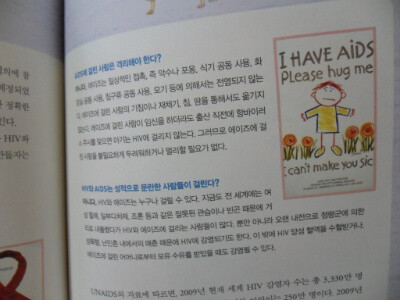 AIDS에 걸린 사람은 격리해야 한다?
아니요, 에이즈는 일상적인 접촉, 즉 악수나 포옹, 식기 공동 사용, 화
장실 공동 사용, 침구류 공동 사용, 모기 등에 의해서는 전염되지 않는
다. 에이즈에 걸린 사람의 기침이나 재채기, 침, 땀을 통해서도 옮기지
않는다. 에이즈에 걸린 사람이 임신을 하더라도 출산 직전에 항바이러
스 주사를 맞으면 아기는 HIV에 걸리지 않는다. 그러므로 에이즈에 걸
린 사람을 불필요하게 두려워하거나 멀리할 필요가 없다.
HIV와 AIDS는 성적으로 문란한 사람들이 걸린다?
아니요, HIV와 에이즈는 누구나 걸릴 수 있다. 지금도 전 세계에는 여
성 할례, 일부다처제, 조혼 등과 같은 잘못된 관습이나 빈곤 때문에 거
리로 내몰렸다가 HIV와 에이즈에 걸리는 사람들이 많다. 뿐만 아니라 오랜 내전으로 점령군에 의한
성폭행, 난민촌 내에서의 매춘 때문에 HIV에 감염되기도 한다. 이 밖에 HIV 양성 혈액을 수혈받거나,
에이즈에 걸린 어머니로부터 모유 수유를 받았을 때도 감염될 수 있다.
UNAIDS의 자료에 따르면, 2009년 현재 세계 HIV 감염자 수는 총 3,330만 명
250만 명이다. 2009년
I HAVE AiDS
PLease hug me
I can't make you sic
HIV와